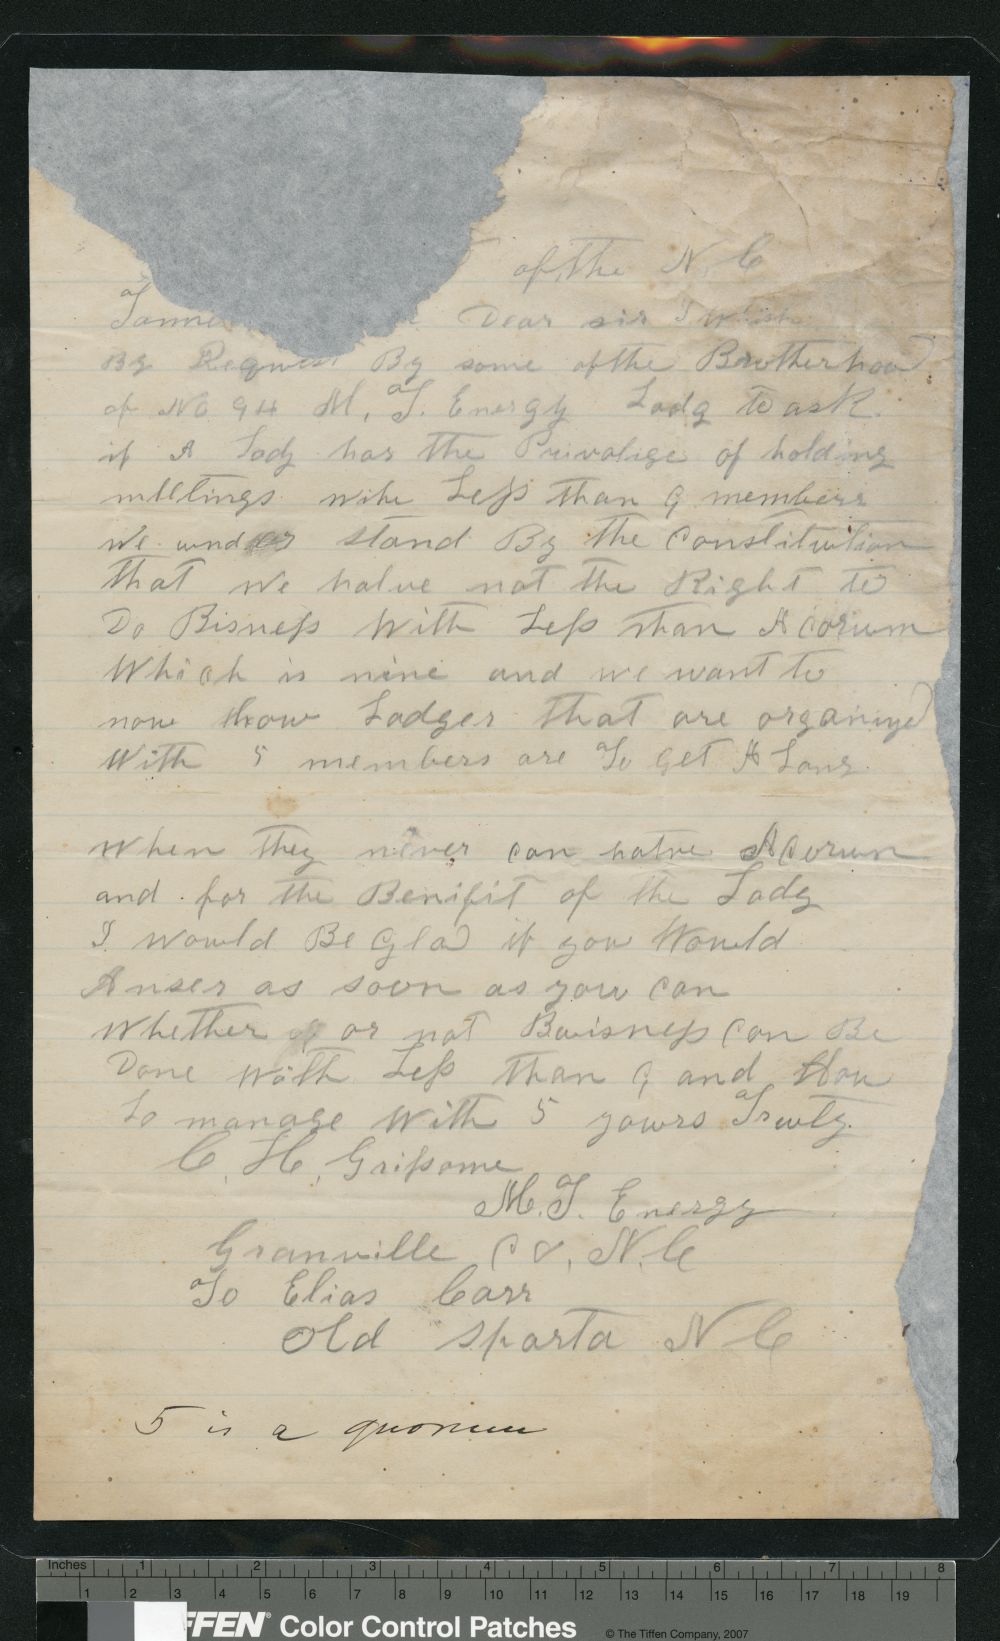 of the N. C
Dear sir I Wish
By Request By some of the Brotherhood
of No 94 M. T. Energy Lodg to ask
if A Lodg has the Privalige of holding
meetings with Less than 9 members
We under stand By the Constitution
that We hatve not the Right to
Do Bisness With Less than A Corum
Which is nine and we want to
now thow Lodges that are organized
With 5 members are To Get A Long
When they never can hatve A Corum
and for the Benifit of the Lodg
I would Be Glad if you Would
Anser as soon as you can
Whether or not Buisness Can Be
Done With Less than 9 and How
to manage With 5 yours Truly
C. H. Grissome
M. T. Energy
Granville Co, N. C
To Elias Carr
Old Sparta N C
5 is a quorum
Inches 1 2 3 4 5 6 7 8
1 2 3 4 5 6 7 8 9 10 11 12 13 14 15 16 17 18 19
FFEN® Color Control Patches © The Tiffen Company, 2007